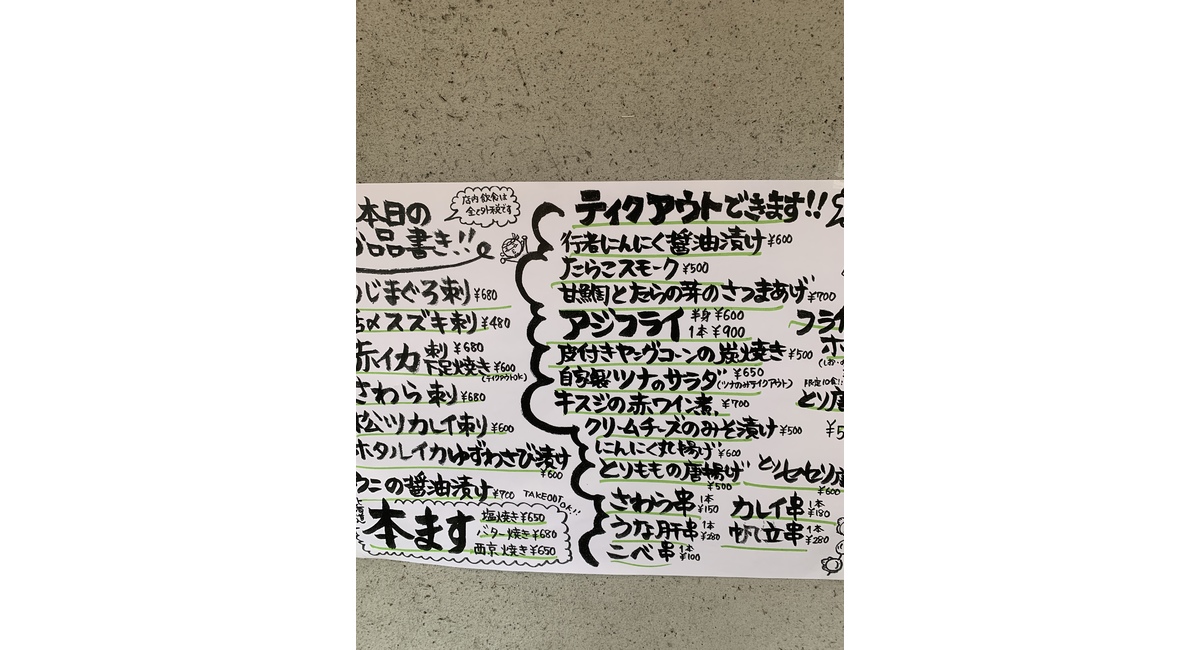 本日の
品書き!!
店内飲食は
全て外税です
じまぐろ刺 ¥680
〆スズキ刺 ¥480
赤イカ 刺 ¥680
下足焼き ¥600
(テイクアウトOK)
さわら刺 ¥680
松ツカレイ刺 ¥600
ホタルイカゆずわさび漬け
¥600
ウニの醤油漬け ¥700
TAKEOUT OK!!
本ます
塩焼き ¥650
バター焼き ¥680
西京焼き ¥650
テイクアウトできます!!
行者にんにく醤油漬け ¥600
たらこスモーク ¥500
甘鯛とたらの芽のさつまあげ ¥700
アジフライ 半身 ¥600
1本 ¥900
皮付きヤングコーンの炭焼き ¥500
自家製ツナのサラダ ¥650
(ツナのみテイクアウト)
牛スジの赤ワイン煮 ¥700
クリームチーズのみそ漬け ¥500
にんにく丸揚げ ¥600
とりももの唐揚げ
¥500
さわら串 1本 ¥150
カレイ串 1本 ¥180
うな肝串 1本 ¥280
帆立串 1本 ¥280
こべ串 1本 ¥100
とりセセリ唐
¥600
フライ
限定10食!
とり唐